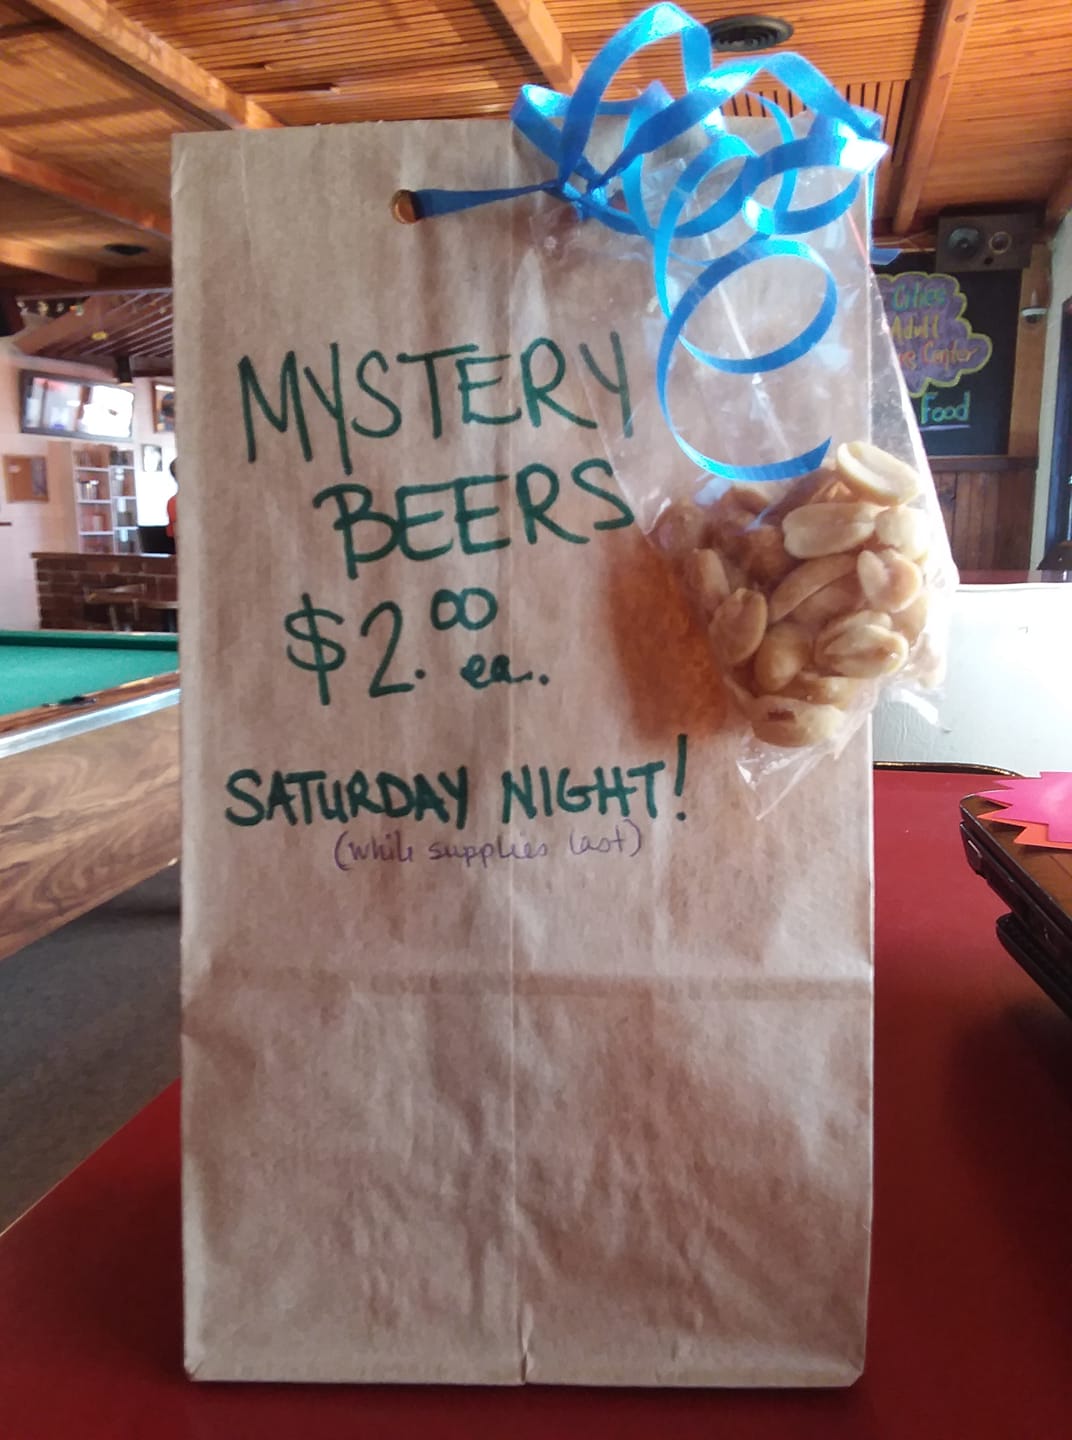 MYSTERY
BEERS
$2.00 ea.
SATURDAY NIGHT!
(while supplies last)
Cities
Adult
Center
Food